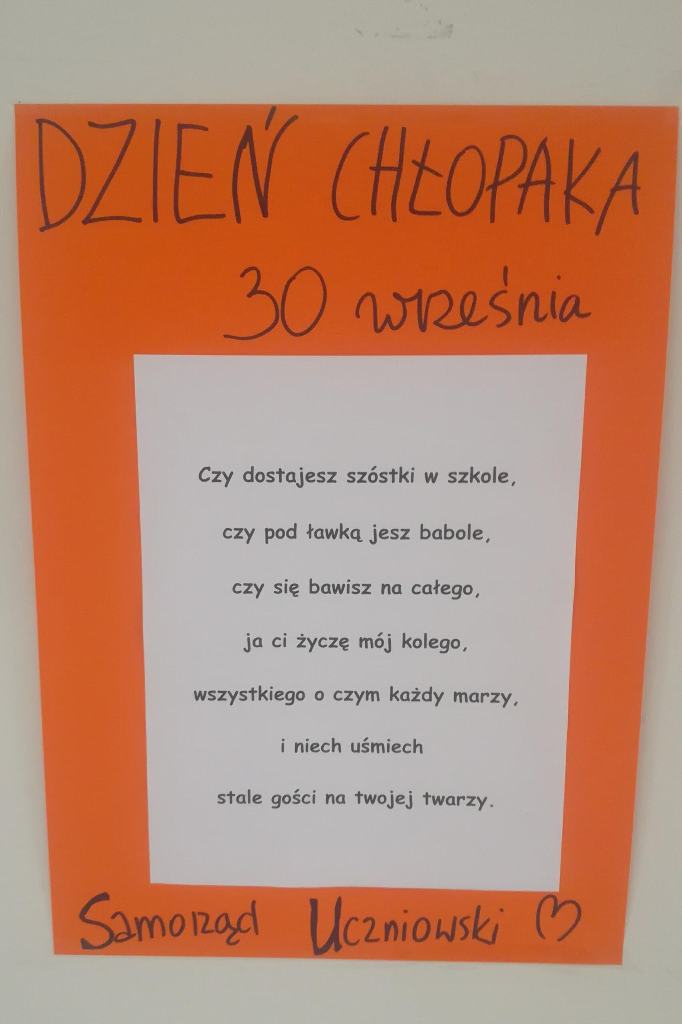 DZIEŃ CHŁOPAKA
30 września
Czy dostajesz szóstki w szkole,
czy pod ławką jesz babole,
czy się bawisz na całego,
ja ci życzę mój kolego,
wszystkiego o czym każdy marzy,
i niech uśmiech
stale gości na twojej twarzy.
Samorząd Uczniowski ♡